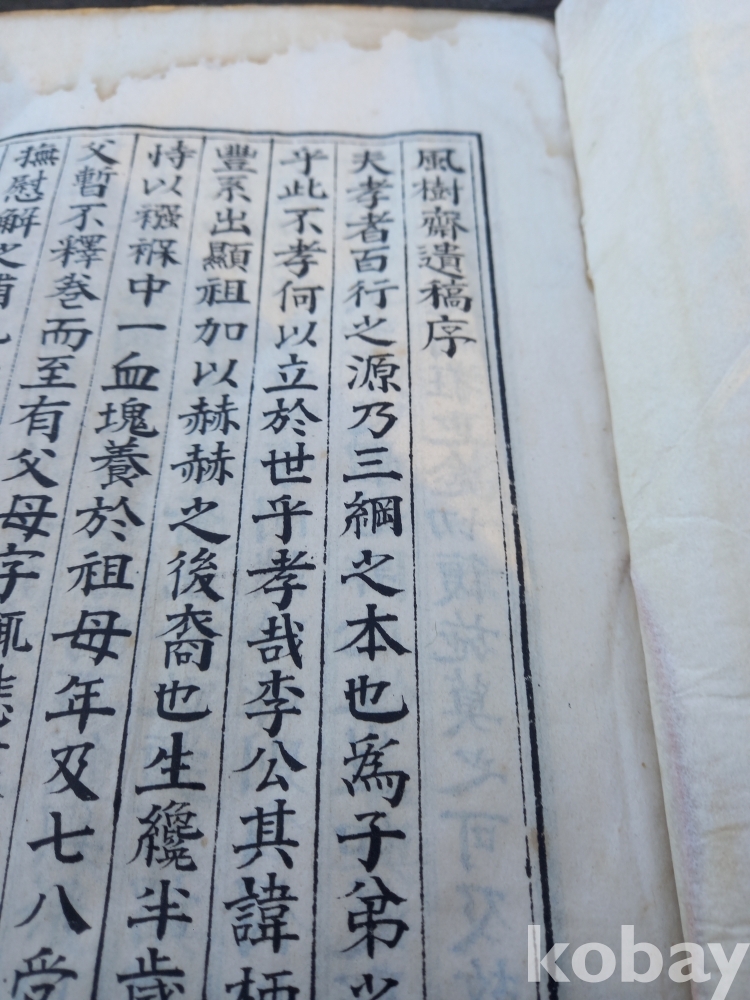 風樹齋遺稿序
夫孝者百行之源乃三綱之本也爲子弟之
乎此不孝何以立於世乎孝哉李公其諱柄
豐系出顯祖加以赫赫之後裔也生纔半歲
恃以襁褓中一血塊養於祖母年及七八受
父暫不釋巻而至有父母字輒悲
撫慰解之
kobay